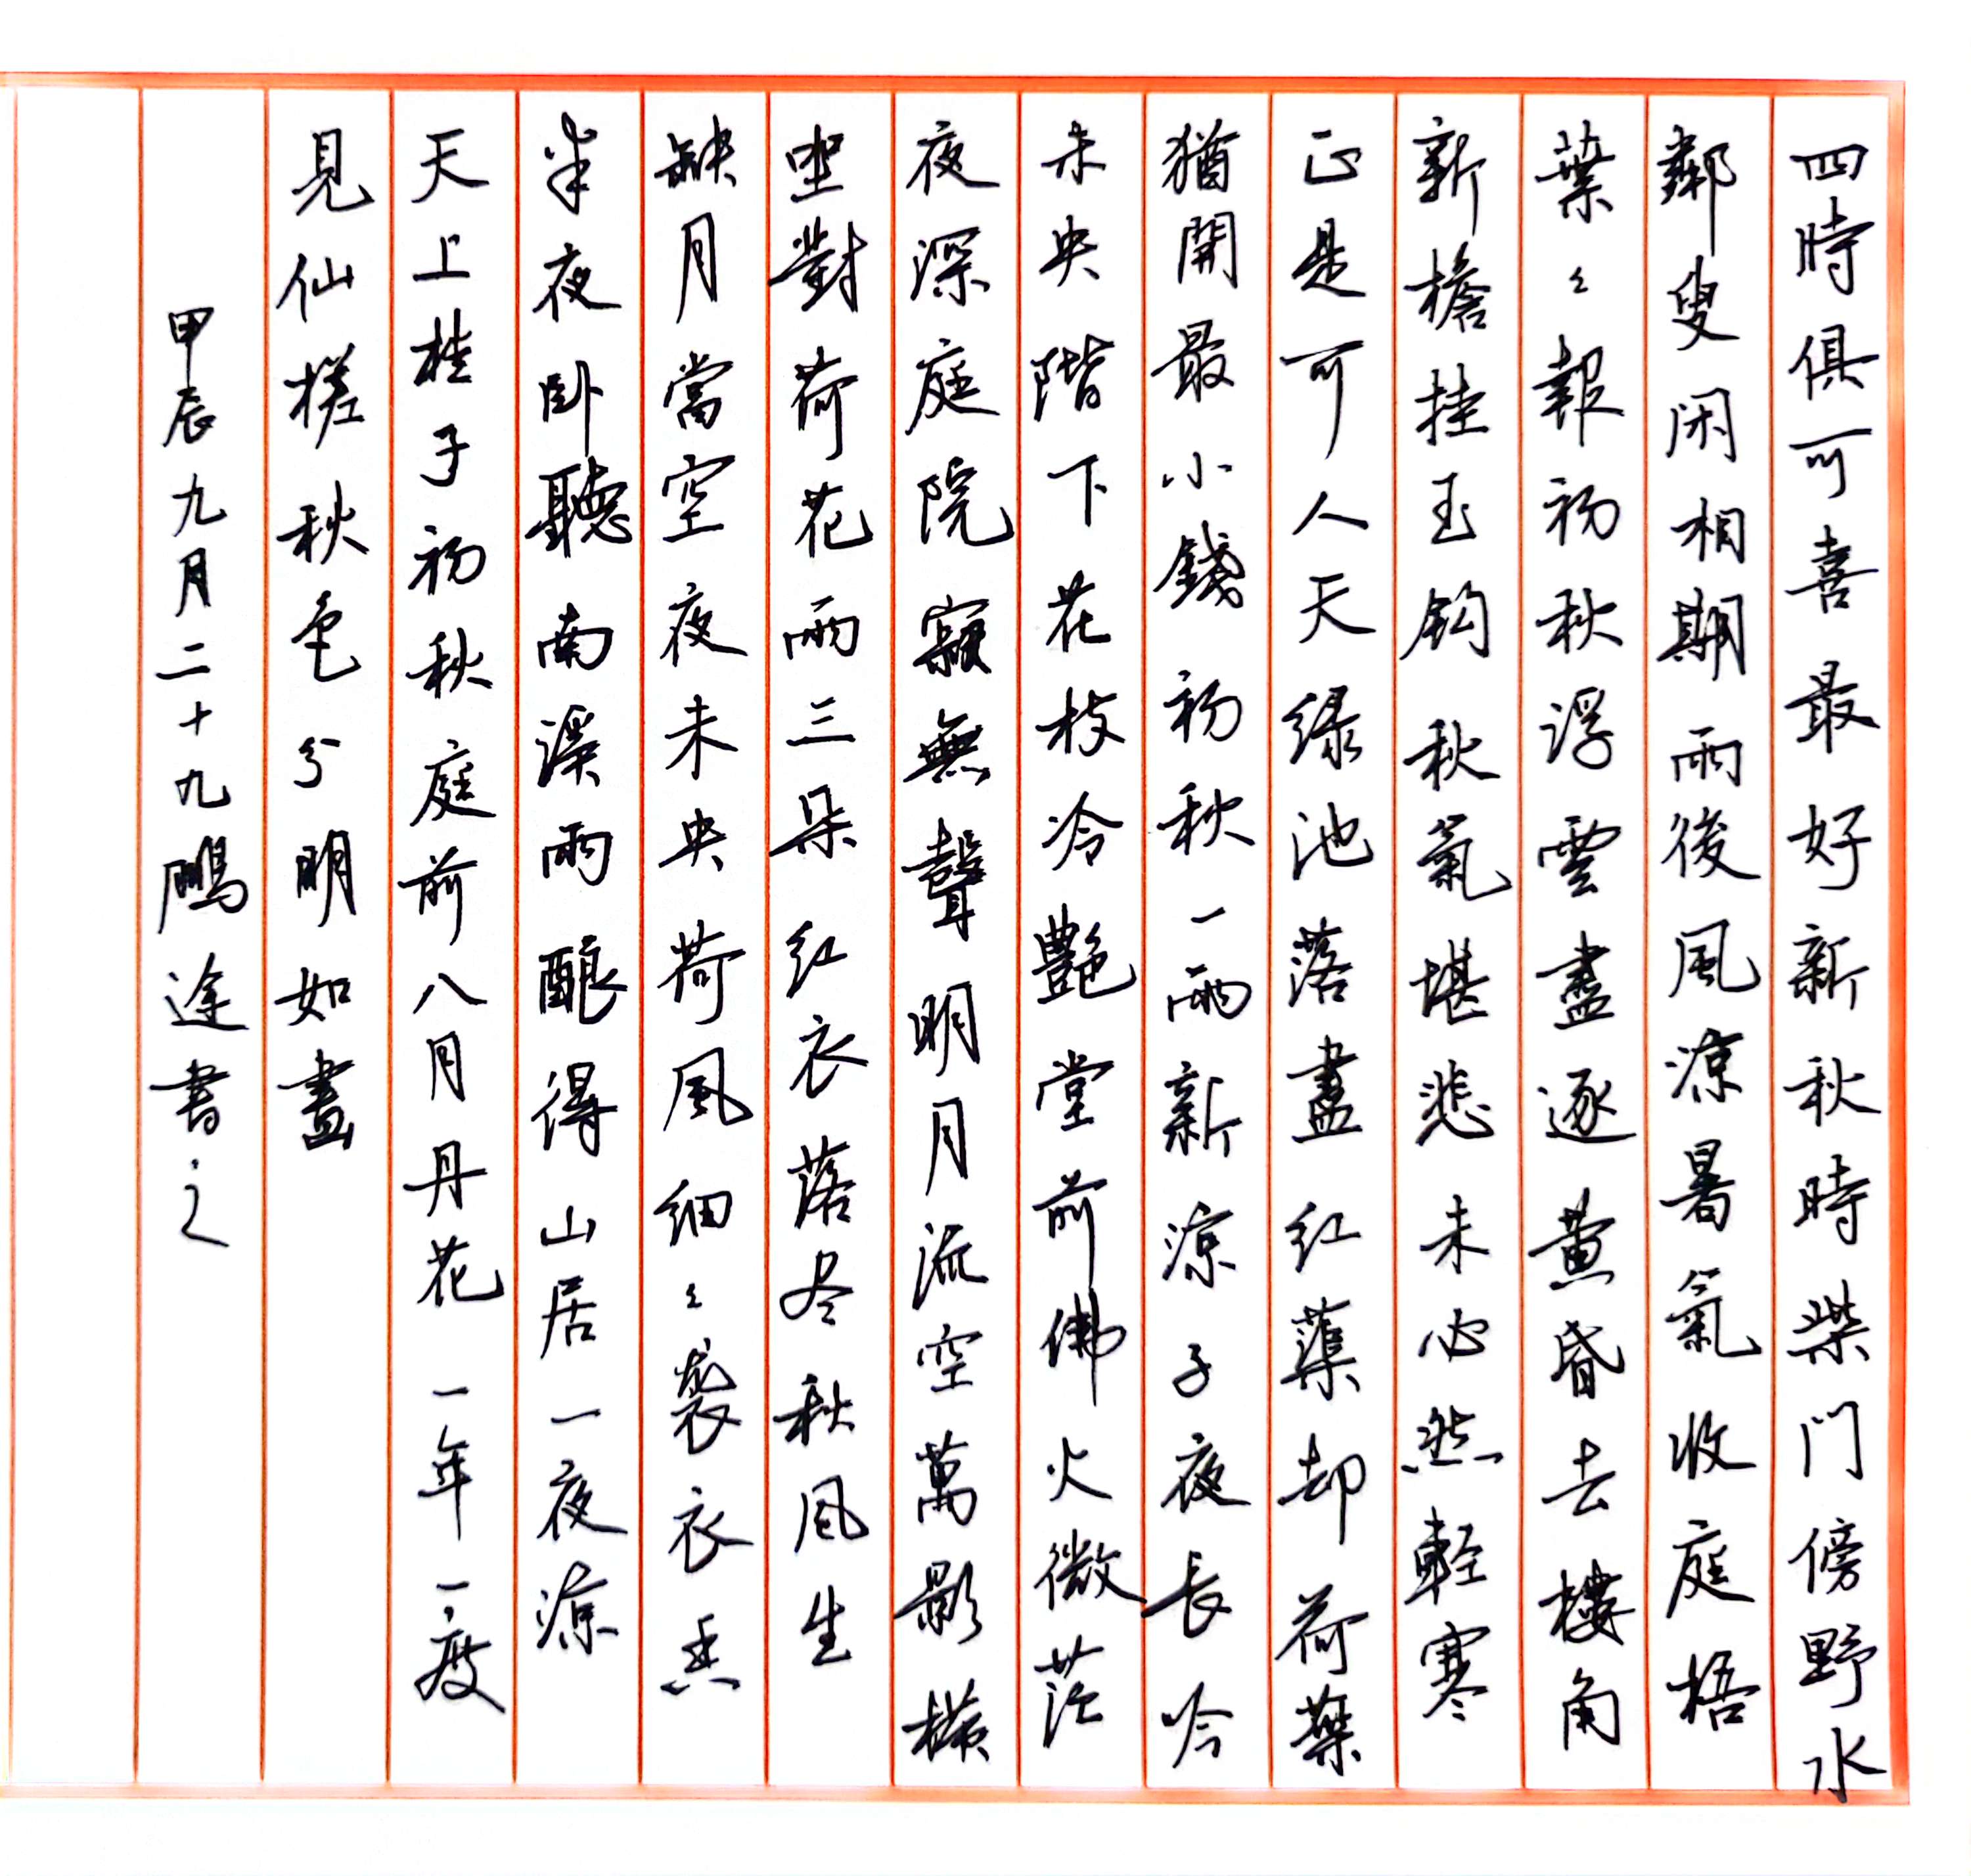 四時俱可喜最好新秋時柴門傍野水
鄰叟閑相期雨後風涼暑氣收庭梧
葉々報初秋浮雲盡逐黃昏去樓角
新檐挂玉鈎秋氣堪悲未必然輕寒
正是可人天绿池落盡红蕖却荷葉
猶開最小錢初秋一雨新涼子夜長吟
未央階下花枝冷艷堂前佛火微茫
夜深庭院寂無聲明月流空萬影橫
坐對荷花兩三朵红衣落尽秋风生
缺月當空夜未央荷風细々袭衣香
半夜卧聽南溪雨酿得山居一夜凉
天上桂子初秋庭前八月丹花一年一度
見仙槎秋色分明如畫
甲辰九月二十九鵬途書之